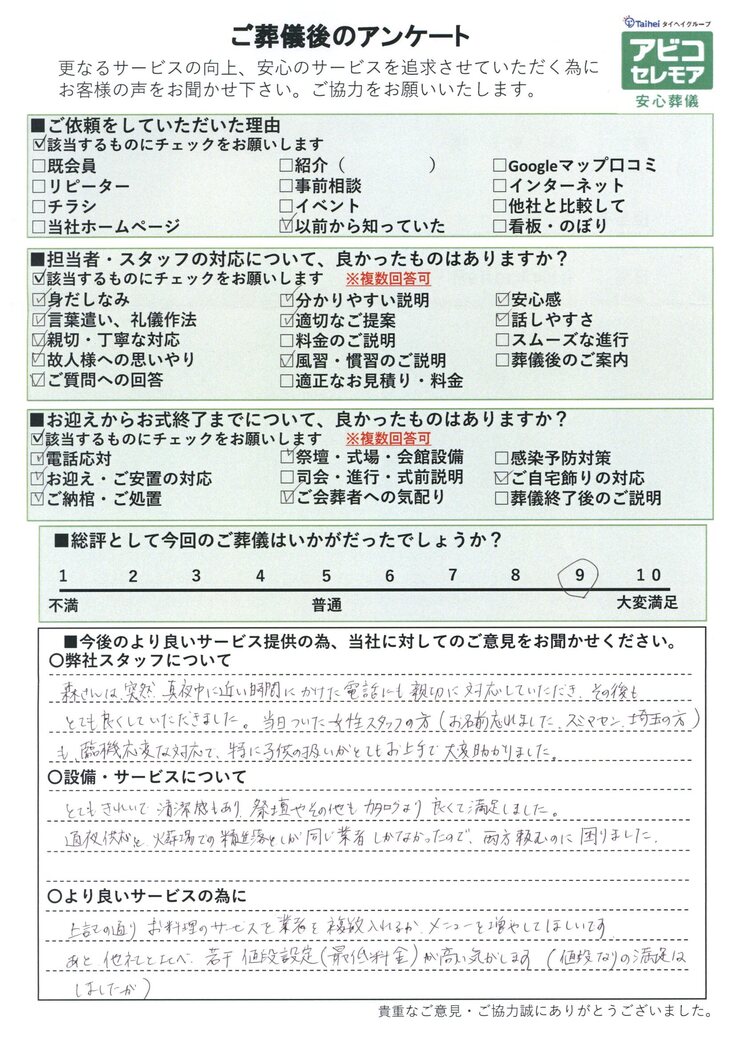 Taihei タイヘイグループ
アビコ
セレモア
安心葬儀
ご葬儀後のアンケート
更なるサービスの向上、安心のサービスを追求させていただく為に
お客様の声をお聞かせ下さい。ご協力をお願いいたします。
■ご依頼をしていただいた理由
☑該当するものにチェックをお願いします
□既会員 □紹介（ ） □Googleマップ口コミ
□リピーター □事前相談 □インターネット
□チラシ □イベント □他社と比較して
□当社ホームページ ☑以前から知っていた □看板・のぼり
■担当者・スタッフの対応について、良かったものはありますか？
☑該当するものにチェックをお願いします ※複数回答可
☑身だしなみ ☑分かりやすい説明 ☑安心感
☑言葉遣い、礼儀作法 ☑適切なご提案 ☑話しやすさ
☑親切・丁寧な対応 □料金のご説明 □スムーズな進行
☑故人様への思いやり ☑風習・慣習のご説明 □葬儀後のご案内
☑ご質問への回答 □適正なお見積り・料金
■お迎えからお式終了までについて、良かったものはありますか？
☑該当するものにチェックをお願いします ※複数回答可
☑電話応対 ☑祭壇・式場・会館設備 □感染予防対策
☑お迎え・ご安置の対応 □司会・進行・式前説明 ☑ご自宅飾りの対応
☑ご納棺・ご処置 ☑ご会葬者への気配り □葬儀終了後のご説明
■総評として今回のご葬儀はいかがだったでしょうか？
1 2 3 4 5 6 7 8 9 10
不満 普通 大変満足
■今後のより良いサービス提供の為、当社に対してのご意見をお聞かせください。
〇弊社スタッフについて
森さんは、突然 真夜中に近い時間にかけた電話にも親切に対応していただき、その後も
とても良くしていただきました。当日ついた女性スタッフの方（お名前忘れました、スミマセン、埼玉の方）
も、臨機応変な対応で、特に子供の扱いがとてもお上手で大変助かりました。
〇設備・サービスについて
とてもきれいで清潔感もあり、祭壇やその他もカタログより良くて満足しました。
通夜供応と、火葬場での精進落としが同じ業者しかなかったので、両方頼むのに困りました。
〇より良いサービスの為に
上記の通り お料理のサービスを業者を複数入れるか、メニューを増やしてほしいです
あと 他社と比べ、若干 値段設定（最低料金）が高い気がします（値段なりの満足は
しましたが）
貴重なご意見・ご協力誠にありがとうございました。